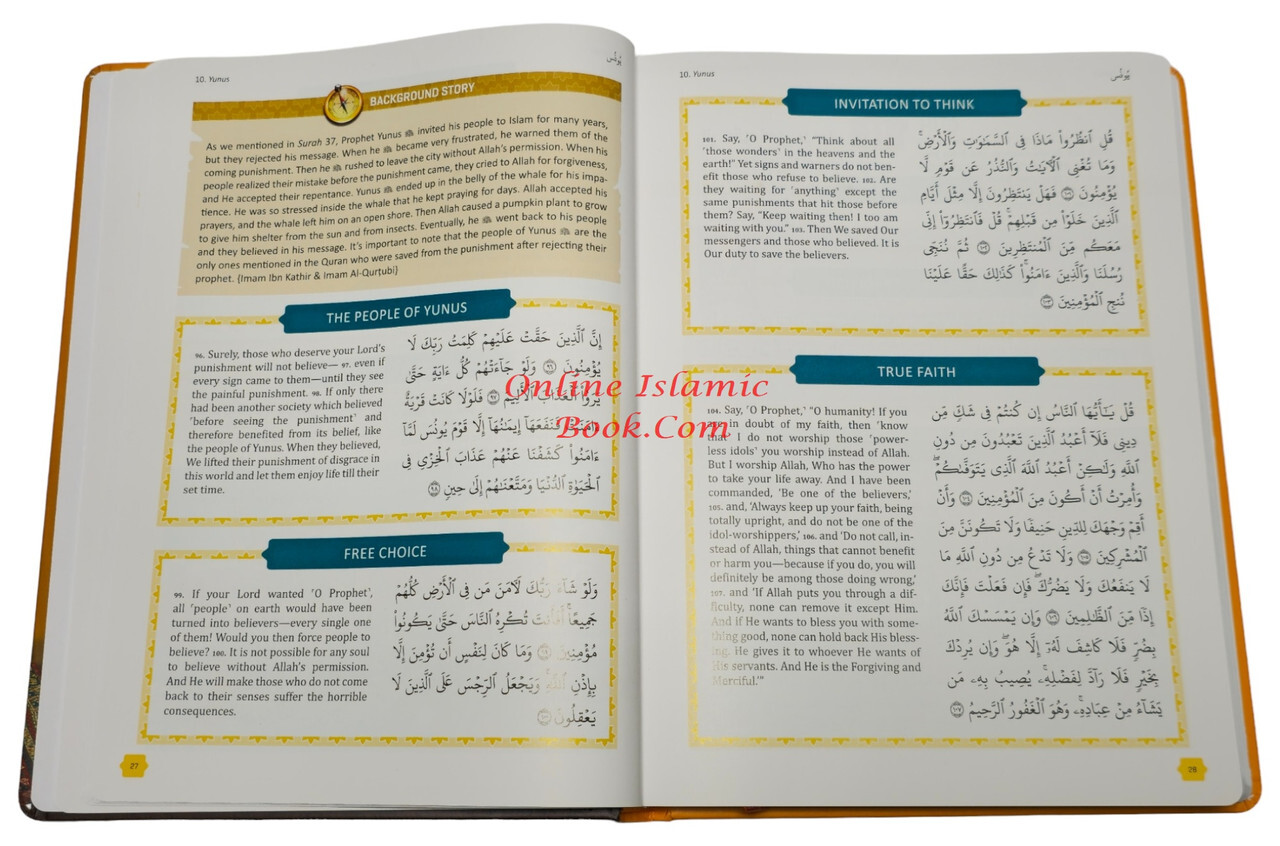 10. Yunus
يُونُس
BACKGROUND STORY
As we mentioned in Surah 37, Prophet Yunus ﷺ invited his people to Islam for many years,
but they rejected his message. When he ﷺ became very frustrated, he warned them of the
coming punishment. Then he ﷺ rushed to leave the city without Allah's permission. When his
people realized their mistake before the punishment came, they cried to Allah for forgiveness,
and He accepted their repentance. Yunus ﷺ ended up in the belly of the whale for his impa-
tience. He was so stressed inside the whale that he kept praying for days. Allah accepted his
prayers, and the whale left him on an open shore. Then Allah caused a pumpkin plant to grow
to give him shelter from the sun and from insects. Eventually, he ﷺ went back to his people
and they believed in his message. It's important to note that the people of Yunus ﷺ are the
only ones mentioned in the Quran who were saved from the punishment after rejecting their
prophet. {Imam Ibn Kathir & Imam Al-Qurṭubi}
THE PEOPLE OF YUNUS
96. Surely, those who deserve your Lord's
punishment will not believe— 97. even if
every sign came to them—until they see
the painful punishment. 98. If only there
had been another society which believed
˹before seeing the punishment˺ and
therefore benefited from its belief, like
the people of Yunus. When they believed,
We lifted their punishment of disgrace in
this world and let them enjoy life till their
set time.
إِنَّ ٱلَّذِينَ حَقَّتْ عَلَيْهِمْ كَلِمَتُ رَبِّكَ لَا
يُؤْمِنُونَ ٩٦ وَلَوْ جَآءَتْهُمْ كُلُّ ءَايَةٍ حَتَّىٰ
يَرَوُا۟ ٱلْعَذَابَ ٱلْأَلِيمَ ٩٧ فَلَوْلَا كَانَتْ قَرْيَةٌ
ءَامَنَتْ فَنَفَعَهَآ إِيمَٰنُهَآ إِلَّا قَوْمَ يُونُسَ لَمَّآ
ءَامَنُوا۟ كَشَفْنَا عَنْهُمْ عَذَابَ ٱلْخِزْىِ فِى
ٱلْحَيَوٰةِ ٱلدُّنْيَا وَمَتَّعْنَٰهُمْ إِلَىٰ حِينٍ ٩٨
FREE CHOICE
99. If your Lord wanted ˹O Prophet˺,
all ˹people˺ on earth would have been
turned into believers—every single one
of them! Would you then force people to
believe? 100. It is not possible for any soul
to believe without Allah's permission.
And He will make those who do not come
back to their senses suffer the horrible
consequences.
وَلَوْ شَآءَ رَبُّكَ لَءَامَنَ مَن فِى ٱلْأَرْضِ كُلُّهُمْ
جَمِيعًا ۚ أَفَأَنتَ تُكْرِهُ ٱلنَّاسَ حَتَّىٰ يَكُونُوا۟
مُؤْمِنِينَ ٩٩ وَمَا كَانَ لِنَفْسٍ أَن تُؤْمِنَ إِلَّا
بِإِذْنِ ٱللَّهِ ۚ وَيَجْعَلُ ٱلرِّجْسَ عَلَى ٱلَّذِينَ لَا
يَعْقِلُونَ ١٠٠
27
10. Yunus
يُونُس
INVITATION TO THINK
101. Say, ˹O Prophet,˺ "Think about all
˹those wonders˺ in the heavens and the
earth!" Yet signs and warners do not ben-
efit those who refuse to believe. 102. Are
they waiting for ˹anything˺ except the
same punishments that hit those before
them? Say, "Keep waiting then! I too am
waiting with you." 103. Then We saved Our
messengers and those who believed. It is
Our duty to save the believers.
قُلِ ٱنظُرُوا۟ مَاذَا فِى ٱلسَّمَٰوَٰتِ وَٱلْأَرْضِ ۚ
وَمَا تُغْنِى ٱلْءَايَٰتُ وَٱلنُّذُرُ عَن قَوْمٍ لَّا
يُؤْمِنُونَ ١٠١ فَهَلْ يَنتَظِرُونَ إِلَّا مِثْلَ أَيَّامِ
ٱلَّذِينَ خَلَوْا۟ مِن قَبْلِهِمْ ۚ قُلْ فَٱنتَظِرُوٓا۟ إِنِّى
مَعَكُم مِّنَ ٱلْمُنتَظِرِينَ ١٠٢ ثُمَّ نُنَجِّى
رُسُلَنَا وَٱلَّذِينَ ءَامَنُوا۟ ۚ كَذَٰلِكَ حَقًّا عَلَيْنَا
نُنجِ ٱلْمُؤْمِنِينَ ١٠٣
TRUE FAITH
104. Say, ˹O Prophet,˺ "O humanity! If you
are in doubt of my faith, then ˹know
that˺ I do not worship those ˹power-
less idols˺ you worship instead of Allah.
But I worship Allah, Who has the power
to take your life away. And I have been
commanded, 'Be one of the believers,'
105. and, 'Always keep up your faith, being
totally upright, and do not be one of the
idol-worshippers,' 106. and 'Do not call, in-
stead of Allah, things that cannot benefit
or harm you—because if you do, you will
definitely be among those doing wrong,'
107. and 'If Allah puts you through a dif-
ficulty, none can remove it except Him.
And if He wants to bless you with some-
thing good, none can hold back His bless-
ing. He gives it to whoever He wants of
His servants. And He is the Forgiving and
Merciful.'"
قُلْ يَٰٓأَيُّهَا ٱلنَّاسُ إِن كُنتُمْ فِى شَكٍّ مِّن
دِينِى فَلَآ أَعْبُدُ ٱلَّذِينَ تَعْبُدُونَ مِن دُونِ
ٱللَّهِ وَلَٰكِنْ أَعْبُدُ ٱللَّهَ ٱلَّذِى يَتَوَفَّىٰكُمْ ۖ
وَأُمِرْتُ أَنْ أَكُونَ مِنَ ٱلْمُؤْمِنِينَ ١٠٤ وَأَنْ
أَقِمْ وَجْهَكَ لِلدِّينِ حَنِيفًا وَلَا تَكُونَنَّ مِنَ
ٱلْمُشْرِكِينَ ١٠٥ وَلَا تَدْعُ مِن دُونِ ٱللَّهِ مَا
لَا يَنفَعُكَ وَلَا يَضُرُّكَ ۖ فَإِن فَعَلْتَ فَإِنَّكَ
إِذًا مِّنَ ٱلظَّٰلِمِينَ ١٠٦ وَإِن يَمْسَسْكَ ٱللَّهُ
بِضُرٍّ فَلَا كَاشِفَ لَهُۥٓ إِلَّا هُوَ ۖ وَإِن يُرِدْكَ
بِخَيْرٍ فَلَا رَآدَّ لِفَضْلِهِۦ ۚ يُصِيبُ بِهِۦ مَن
يَشَآءُ مِنْ عِبَادِهِۦ ۚ وَهُوَ ٱلْغَفُورُ ٱلرَّحِيمُ ١٠٧
28
Online Islamic
Book.Com